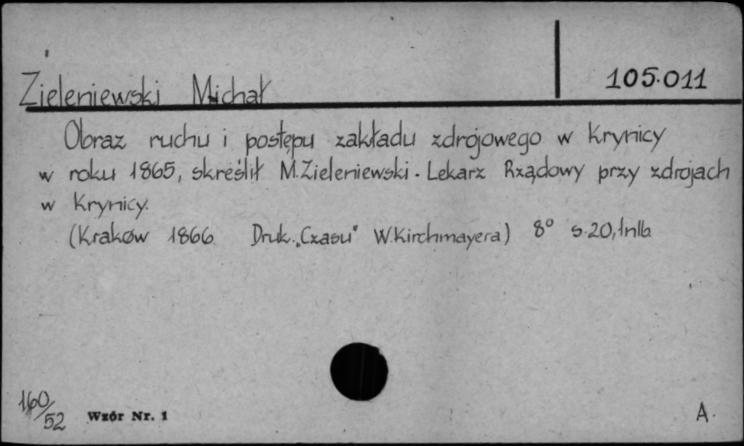 Zieleniewski Michał
105.011
Obraz ruchu i postępu zakładu zdrojowego w Krynicy
w roku 1865, skreślił M.Zieleniewski. Lekarz Rządowy przy zdrojach
w Krynicy.
(Kraków 1866 Druk. „Czasu" W.Kirchmayera) 8° s.20, 1nlb.
160/52
Wzór Nr. 1
A.